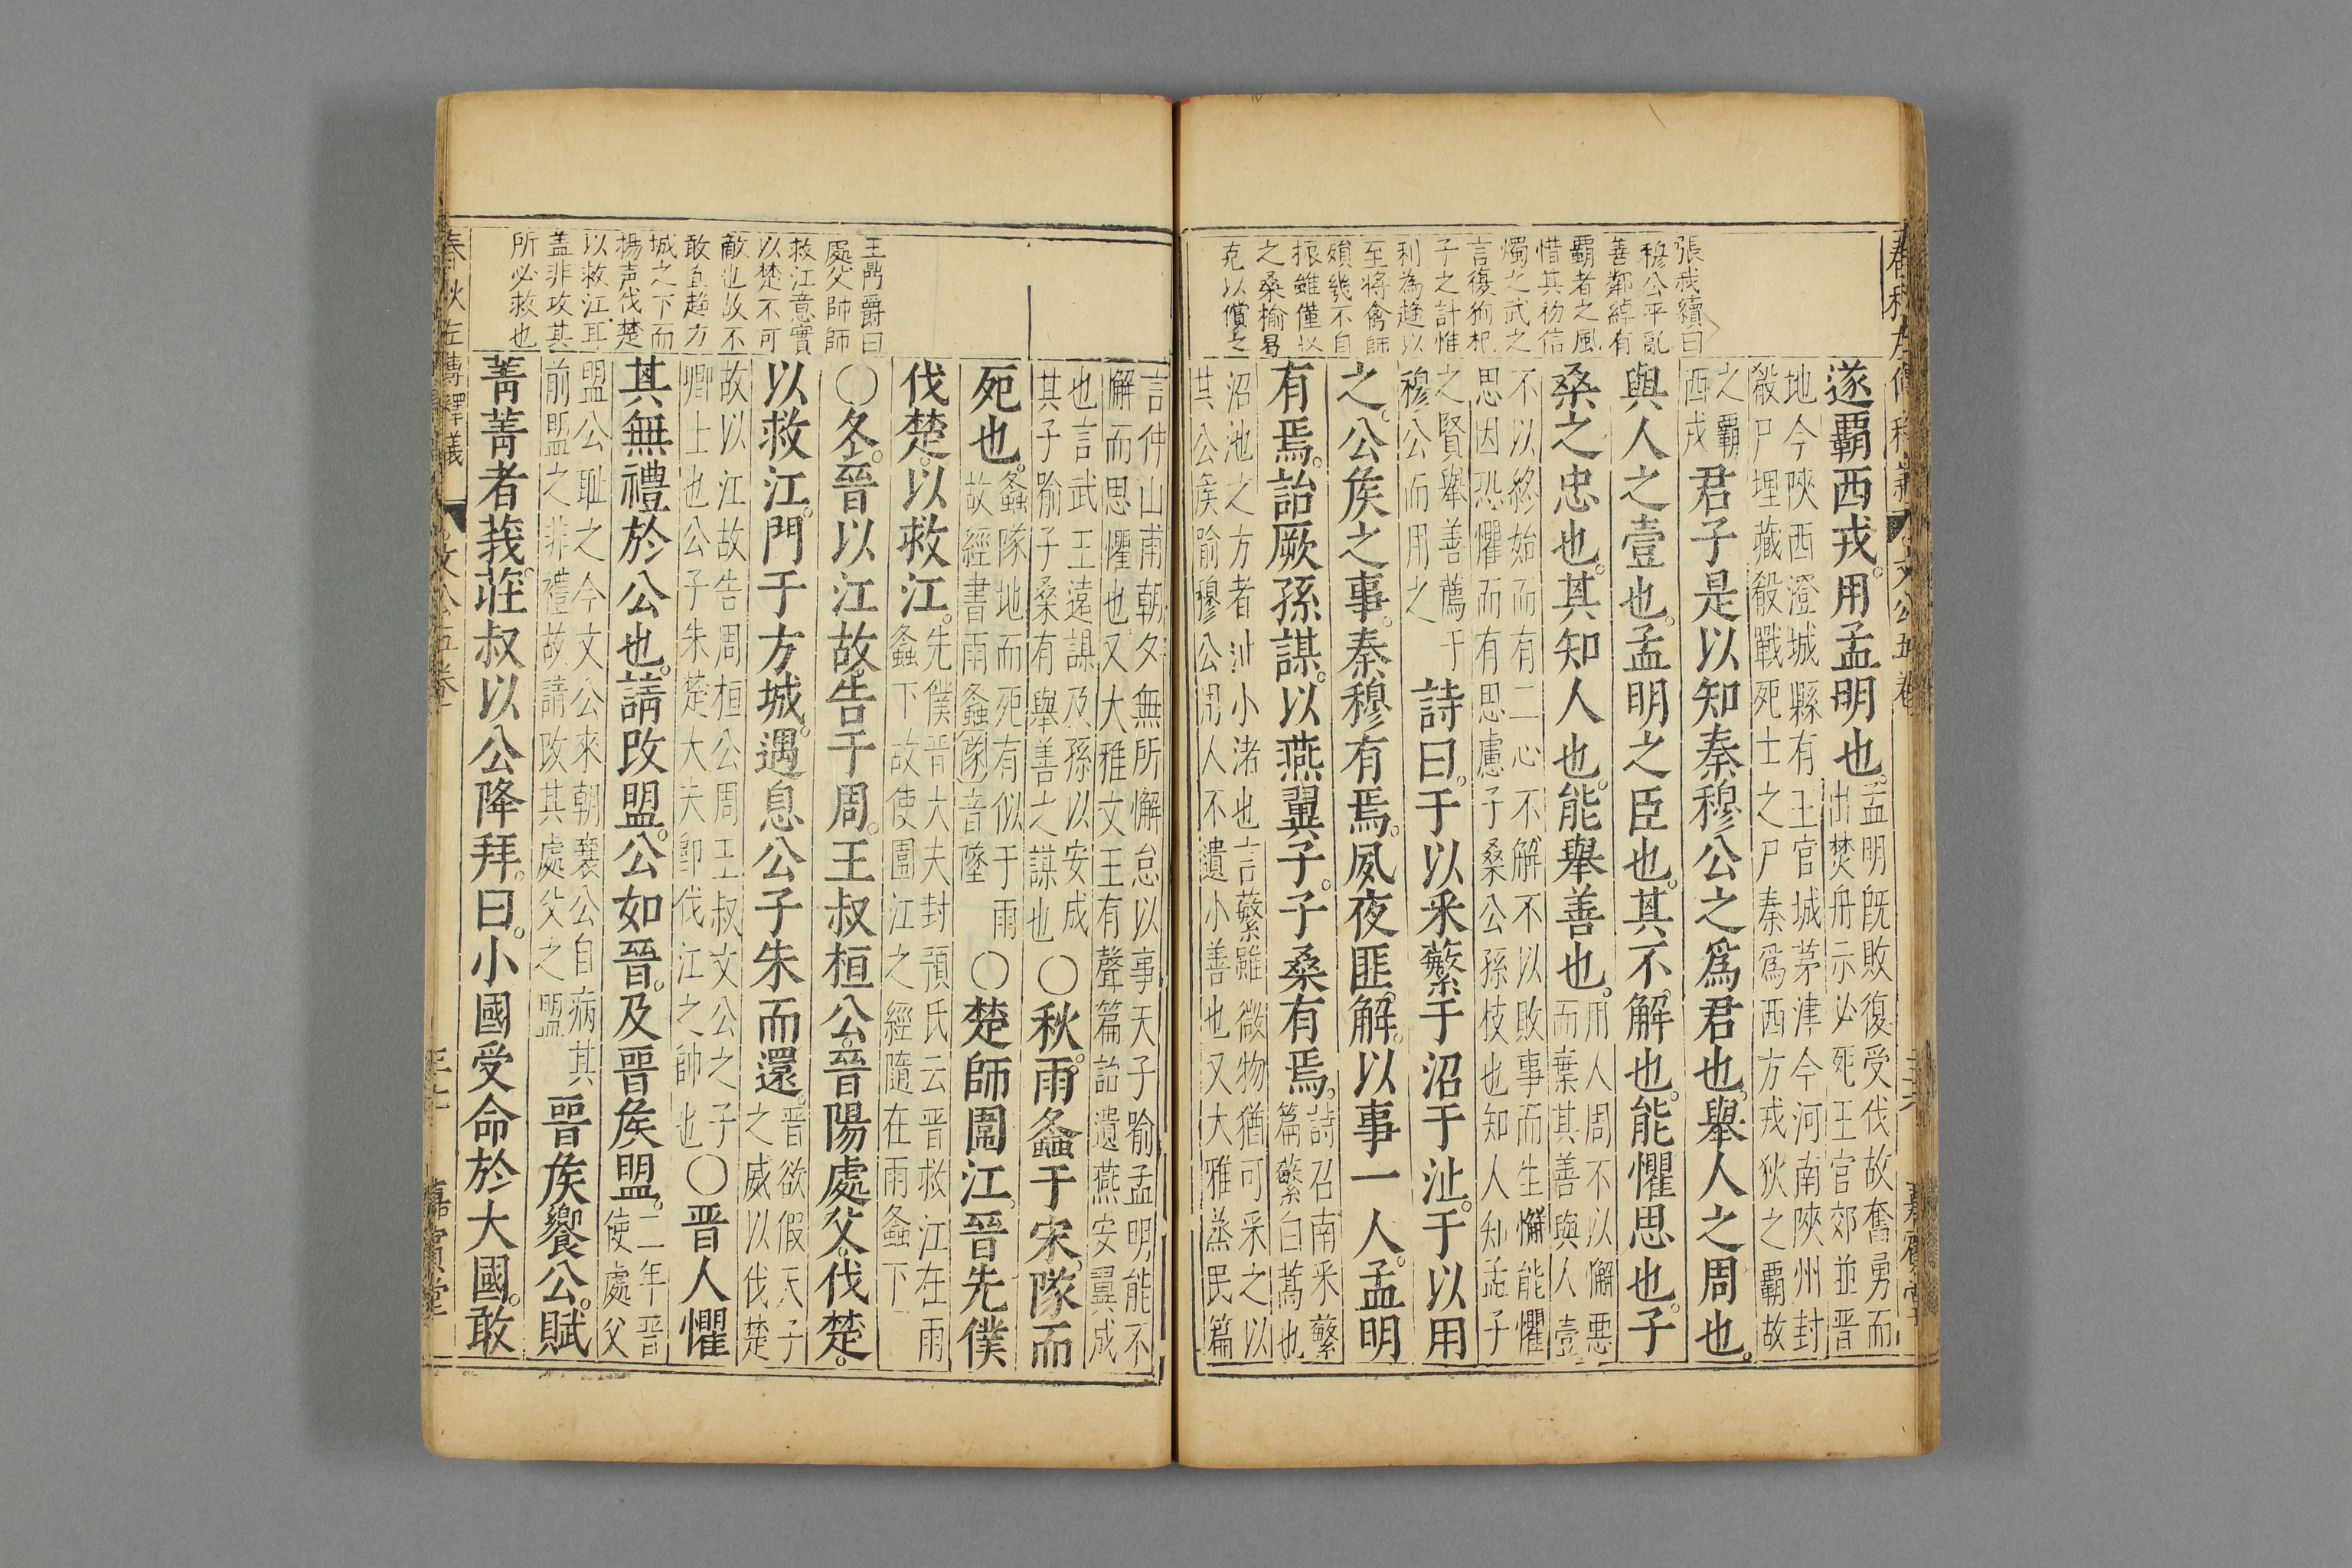 春秋左傳釋義
文公五卷
張我續曰
穆公平亂
善鄰綽有
覇者之風
惜其初信
燭之武之
言復狥杞
子之計惟
利為趍以
至將禽師
殞幾不自
振雖僅收
之桑榆曷
克以償之
遂覇西戎用孟明也
孟明既敗復受伐故奮勇而
出焚舟示必死王官郊並晉
地今陝西澄城縣有王官城茅津今河南陝州封
殽尸埋藏殽戰死士之尸秦爲西方戎狄之覇故
之覇
西戎
君子是以知秦穆公之爲君也舉人之周也
與人之壹也孟明之臣也其不解也能懼思也子
桑之忠也其知人也能舉善也
用人周不以懈惡
而棄其善與人壹
不以終始而有二心不解不以敗事而生懈能懼
思因恐懼而有思慮子桑公孫枝也知人知孟子
之賢舉善薦于
穆公而用之
詩曰于以采蘩于沼于沚于以用
之公矦之事秦穆有焉夙夜匪解以事一人孟明
有焉詒厥孫謀以燕翼子子桑有焉
詩召南采蘩
篇蘩白蒿也
沼池之方者沚小渚也言蘩雖微物猶可采之以
其公矦喻穆公用人不遺小善也又大雅蒸民篇
言仲山甫朝夕無所懈怠以事天子喻孟明能不
解而思懼也又大雅文王有聲篇詒遺燕安翼成
也言武王遠謀及孫以安成
其子喻子桑有舉善之謀也
〇秋雨螽于宋隊而
死也
螽隊地而死有似于雨
故經書雨螽隊音墜
〇楚師圍江晉先僕
伐楚以救江
先僕晉大夫封預氏云晉救江在雨
螽下故使圍江之經隨在雨螽下
〇冬晉以江故告于周王叔桓公晉陽處父伐楚
以救江門于方城遇息公子朱而還
晉欲假天子
之威以伐楚
故以江故告周桓公周王叔文公之子
卿士也公子朱楚大夫即伐江之帥也
〇晉人懼
其無禮於公也請改盟公如晉及晉矦盟
二年晉
使處父
盟公耻之今文公來朝襄公自病其
前盟之非禮故請改其處父之盟
晉矦饗公賦
菁菁者莪莊叔以公降拜曰小國受命於大國敢
王鼎爵曰
處父帥師
救江意實
以楚不可
敵也故不
敢直趍方
城之下而
揚声伐楚
以救江耳
盖非攻其
所必救也
春秋左傳釋義
文公五卷
嘉賓堂